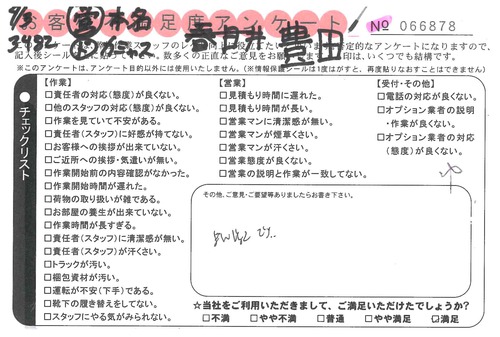 お客様満足度アンケート
No 066878
記入後シール
※このアンケートは、アンケート目的以外には使用いたしません。(※情報保護シールは1度はがすと、再度貼りなおすことはできません)
チェックリスト
【作業】
□責任者の対応(態度)が良くない。
□他のスタッフの対応(態度)が良くない。
□作業を見ていて不安がある。
□責任者(スタッフ)に好感が持てない。
□お客様への挨拶が出来ていない。
□ご近所への挨拶・気遣いが無い。
□作業開始前の内容確認がなかった。
□作業開始時間が遅れた。
□荷物の取り扱いが雑である。
□お部屋の養生が出来ていない。
□作業時間が長すぎる。
□責任者(スタッフ)に清潔感が無い。
□責任者(スタッフ)が汗くさい。
□トラックが汚い。
□梱包資材が汚い。
□運転が不安(下手)である。
□靴下の履き替えをしてない。
□スタッフにやる気がみられない。
【営業】
□見積もり時間に遅れた。
□見積もり時間が長い。
□営業マンに清潔感が無い。
□営業マンが煙草くさい。
□営業マンが汗くさい。
□営業態度が良くない。
□営業の説明と作業が一致してない。
【受付・その他】
□電話の対応が良くない。
□オプション業者の説明
・作業が良くない。
□オプション業者の対応
(態度)が良くない。
その他、ご意見・ご要望等ありましたらお書き下さい。
☆当社をご利用いただきまして、ご満足いただけたでしょうか?
□不満 □やや不満 □普通 □やや満足 ☑満足